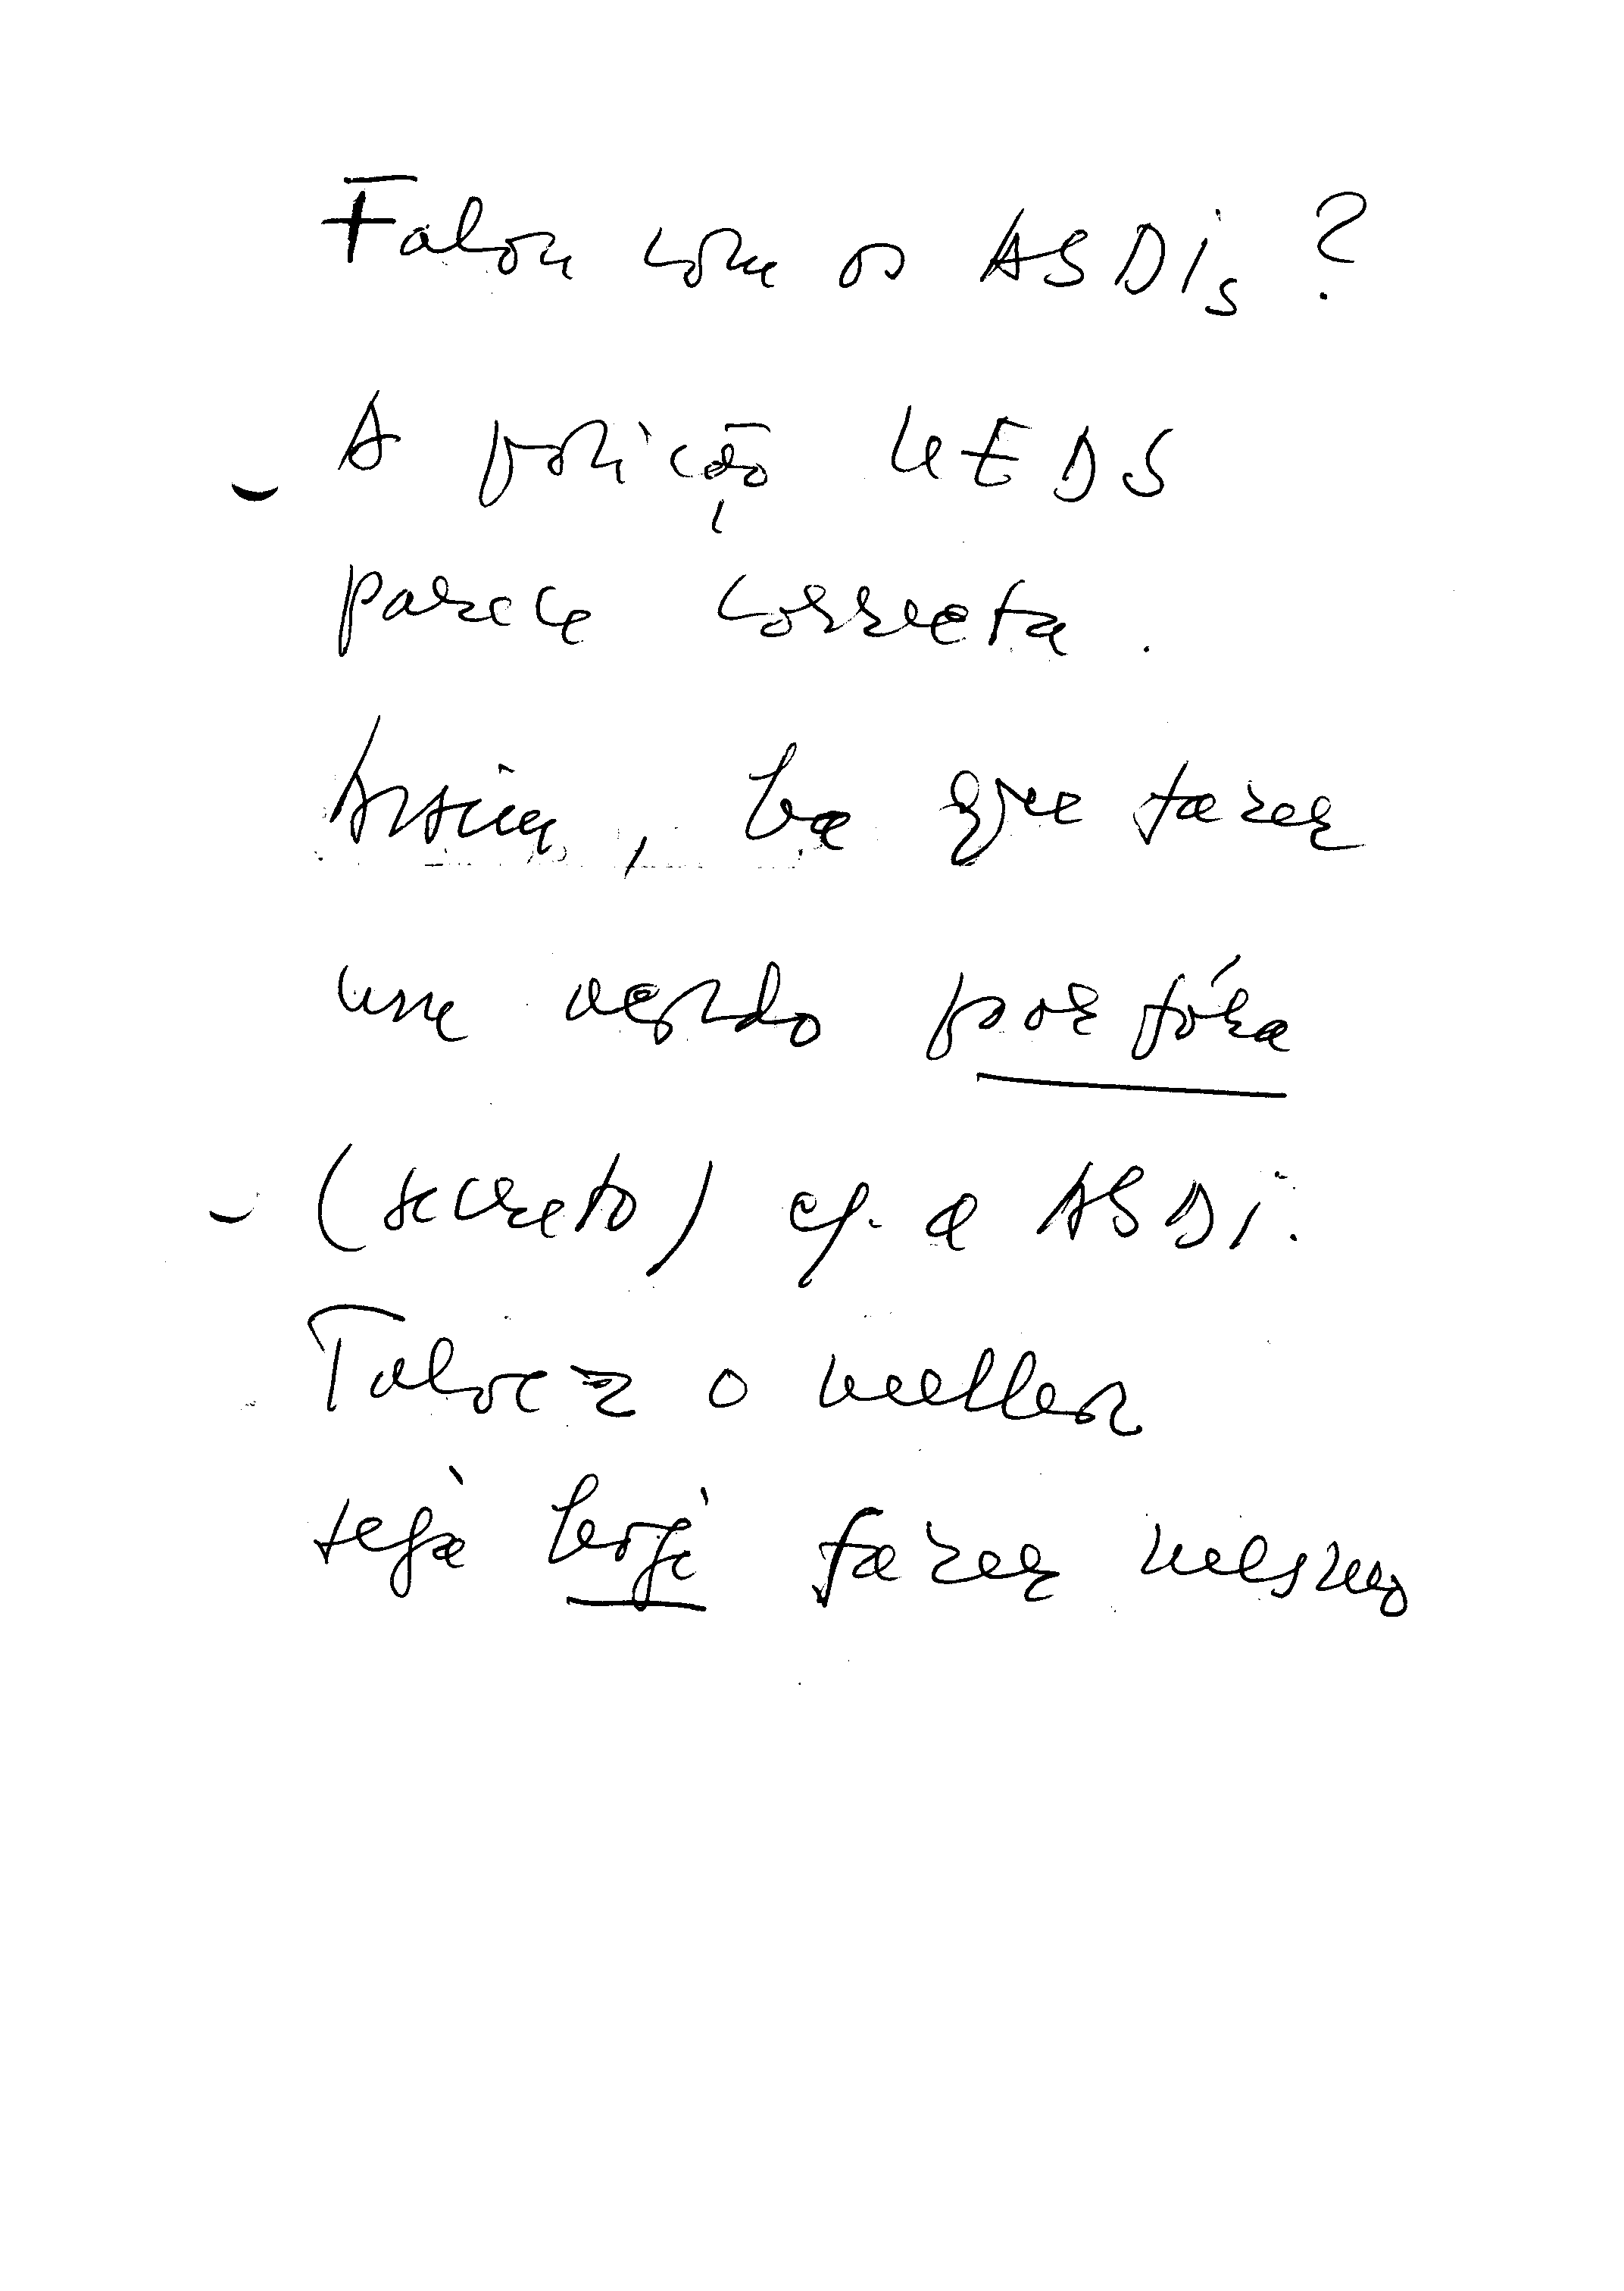 Falou com os ASDIs?
A posição UEDS
parece correcta.
Assim, há que fazer
um acordo por fóra
(secreto) c/. a ASDI.
Talvez o melhor
seja hoje fazer mesmo